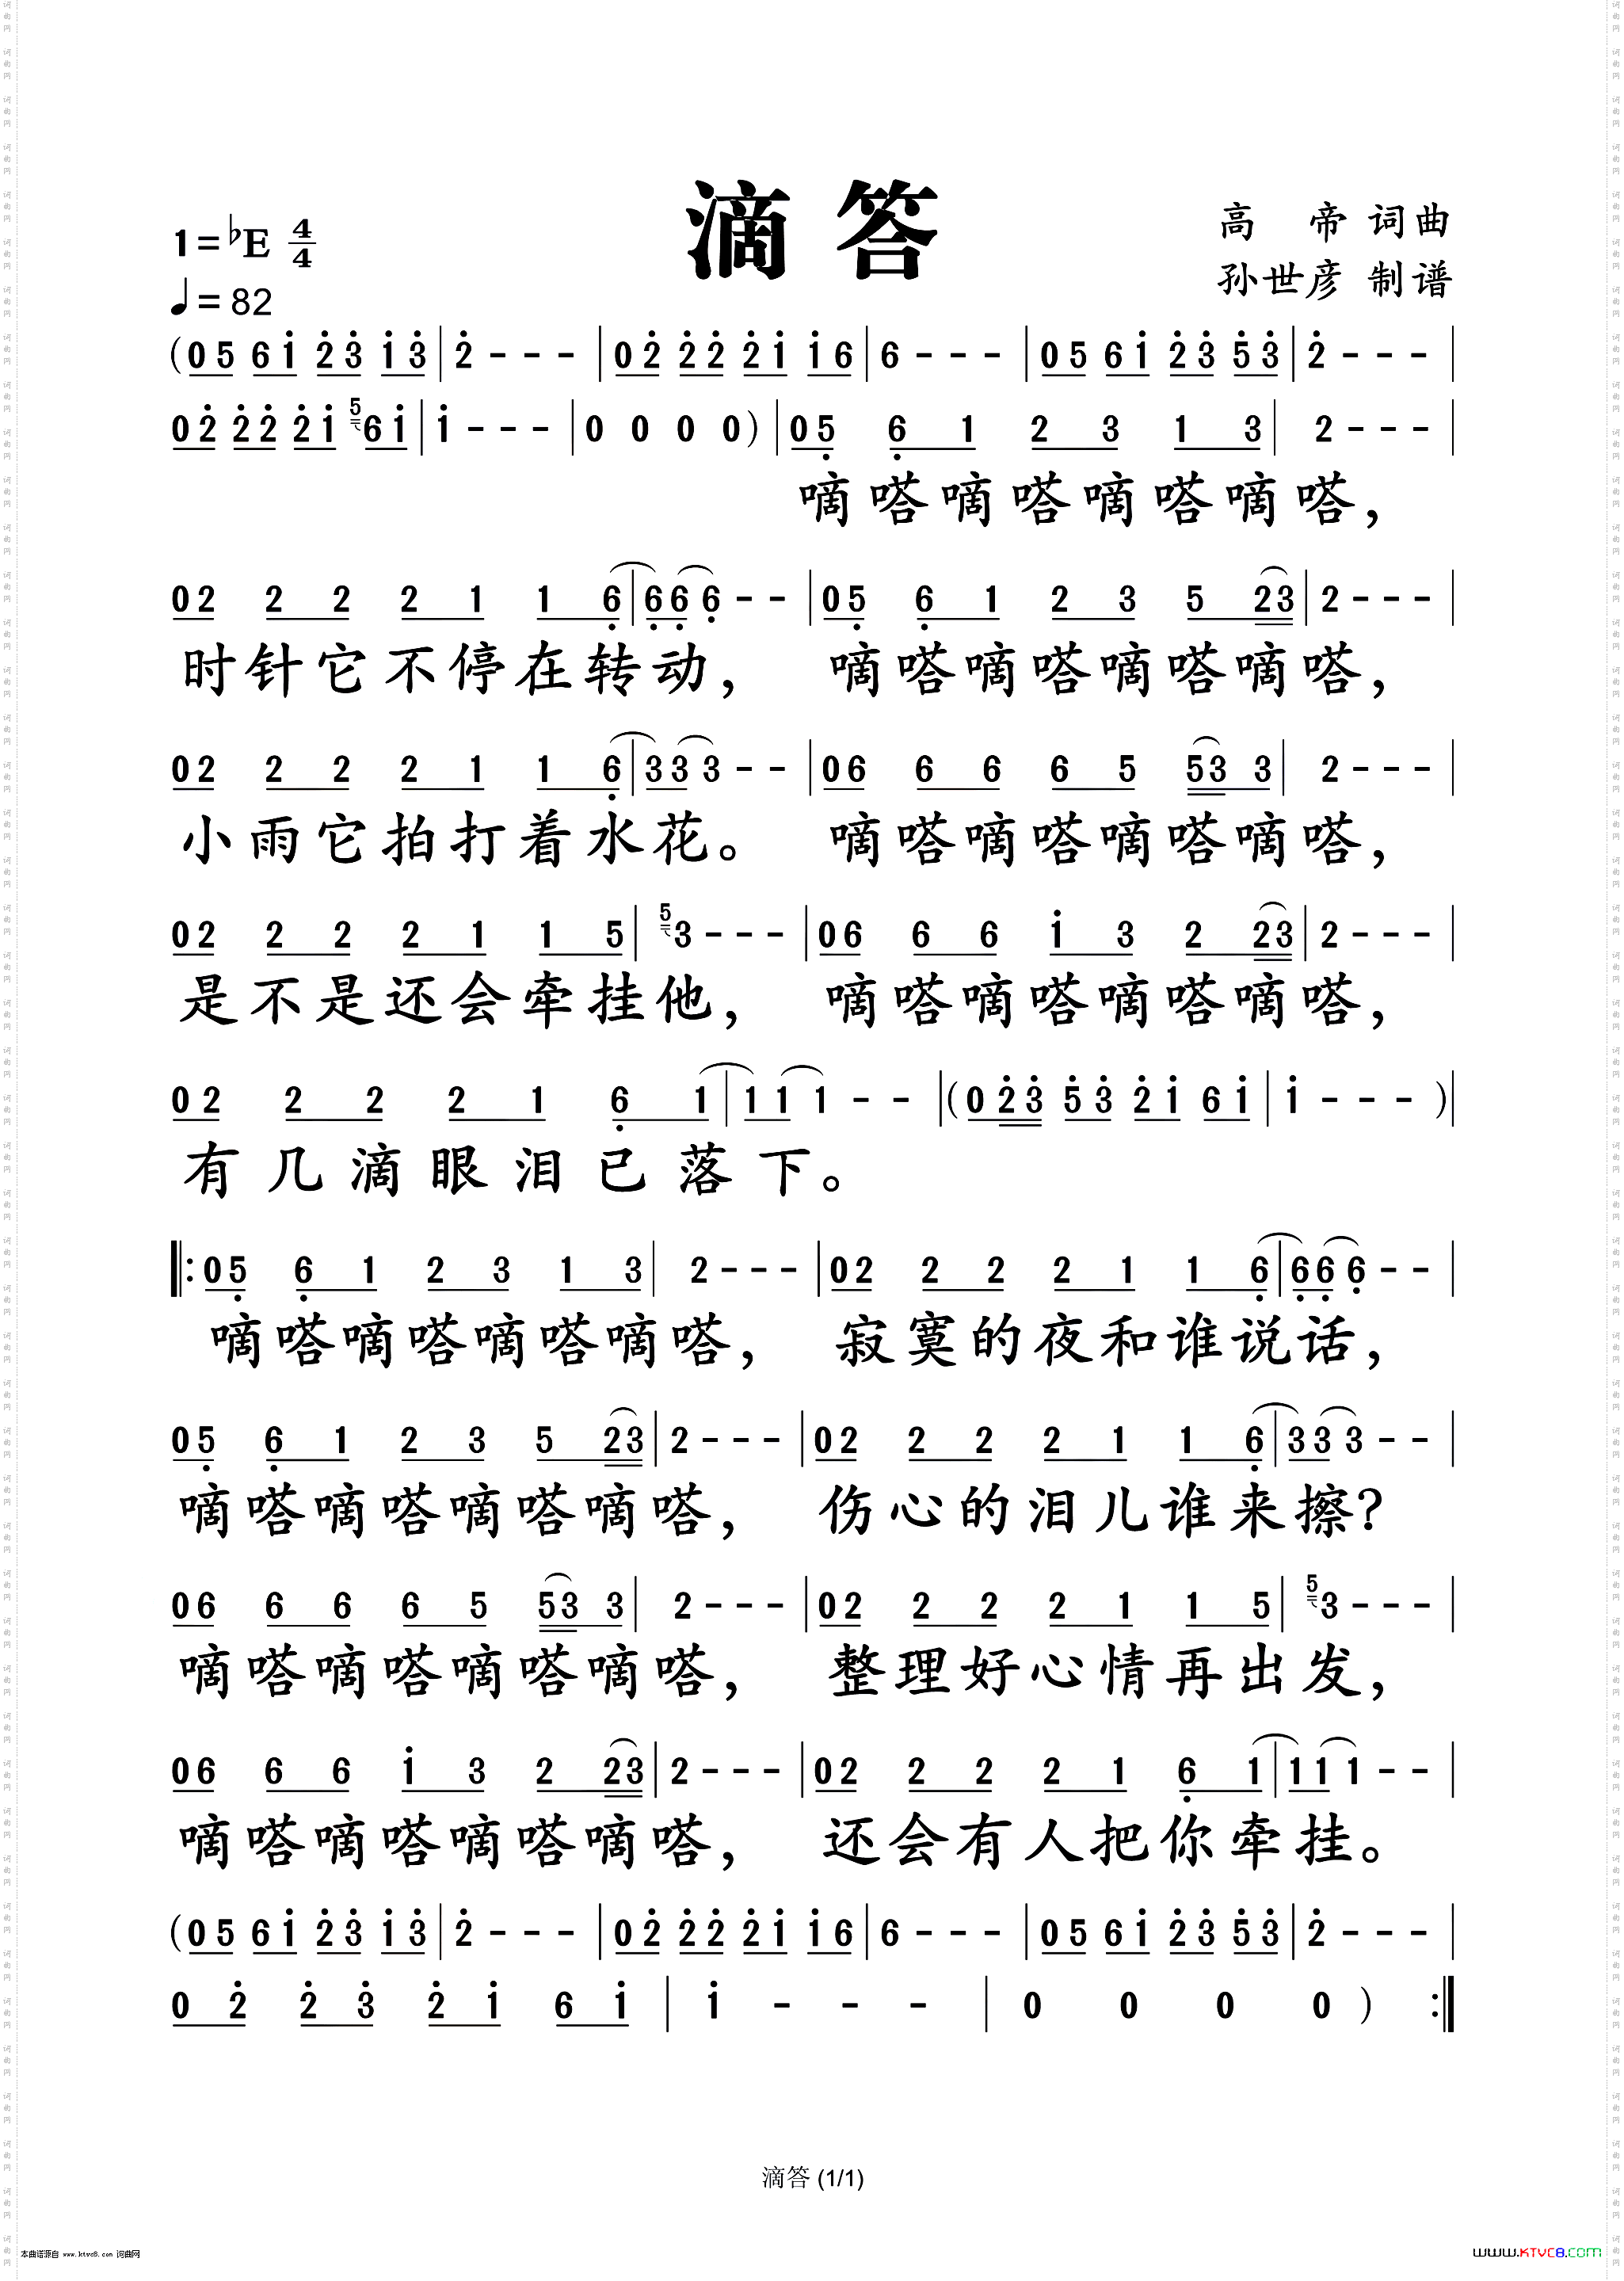 滴答
1=♭E 4/4
高 帝 词曲
♩=82
孙世彦 制谱
(0 5 6 1̇ 2̇ 3̇ 1̇ 3̇ | 2̇ - - - | 0 2̇ 2̇ 2̇ 2̇ 1̇ 1̇ 6 | 6 - - - | 0 5 6 1̇ 2̇ 3̇ 5̇ 3̇ | 2̇ - - - |
0 2̇ 2̇ 2̇ 2̇ 1̇ 5 6 1̇ | 1̇ - - - | 0 0 0 0) | 0 5̣ 6̣ 1 2 3 1 3 | 2 - - - |
嘀嗒嘀嗒嘀嗒嘀嗒,
0 2 2 2 2 1 1 6̣ | 6̣ 6̣ 6̣ - - | 0 5̣ 6̣ 1 2 3 5 2 3 | 2 - - - |
时针它不停在转动, 嘀嗒嘀嗒嘀嗒嘀嗒,
0 2 2 2 2 1 1 6̣ | 3 3 3 - - | 0 6 6 6 6 5 5 3 3 | 2 - - - |
小雨它拍打着水花。 嘀嗒嘀嗒嘀嗒嘀嗒,
0 2 2 2 2 1 1 5 | 5 3 - - - | 0 6 6 6 1̇ 3 2 2 3 | 2 - - - |
是不是还会牵挂他, 嘀嗒嘀嗒嘀嗒嘀嗒,
0 2 2 2 2 1 6̣ 1 | 1 1 1 - - | (0 2̇ 3̇ 5̇ 3̇ 2̇ 1̇ 6 1̇ | 1̇ - - - )|
有几滴眼泪已落下。
‖: 0 5̣ 6̣ 1 2 3 1 3 | 2 - - - | 0 2 2 2 2 1 1 6̣ | 6̣ 6̣ 6̣ - - |
嘀嗒嘀嗒嘀嗒嘀嗒, 寂寞的夜和谁说话,
0 5̣ 6̣ 1 2 3 5 2 3 | 2 - - - | 0 2 2 2 2 1 1 6̣ | 3 3 3 - - |
嘀嗒嘀嗒嘀嗒嘀嗒, 伤心的泪儿谁来擦?
0 6 6 6 6 5 5 3 3 | 2 - - - | 0 2 2 2 2 1 1 5 | 5 3 - - - |
嘀嗒嘀嗒嘀嗒嘀嗒, 整理好心情再出发,
0 6 6 6 1̇ 3 2 2 3 | 2 - - - | 0 2 2 2 2 1 6̣ 1 | 1 1 1 - - |
嘀嗒嘀嗒嘀嗒嘀嗒, 还会有人把你牵挂。
(0 5 6 1̇ 2̇ 3̇ 1̇ 3̇ | 2̇ - - - | 0 2̇ 2̇ 2̇ 2̇ 1̇ 1̇ 6 | 6 - - - | 0 5 6 1̇ 2̇ 3̇ 5̇ 3̇ | 2̇ - - - |
0 2̇ 2̇ 3̇ 2̇ 1̇ 6 1̇ | 1̇ - - - | 0 0 0 0 ) :‖
滴答 (1/1)
本曲谱源自 www.ktvc8.com 词曲网
WWW.KTVC8.COM